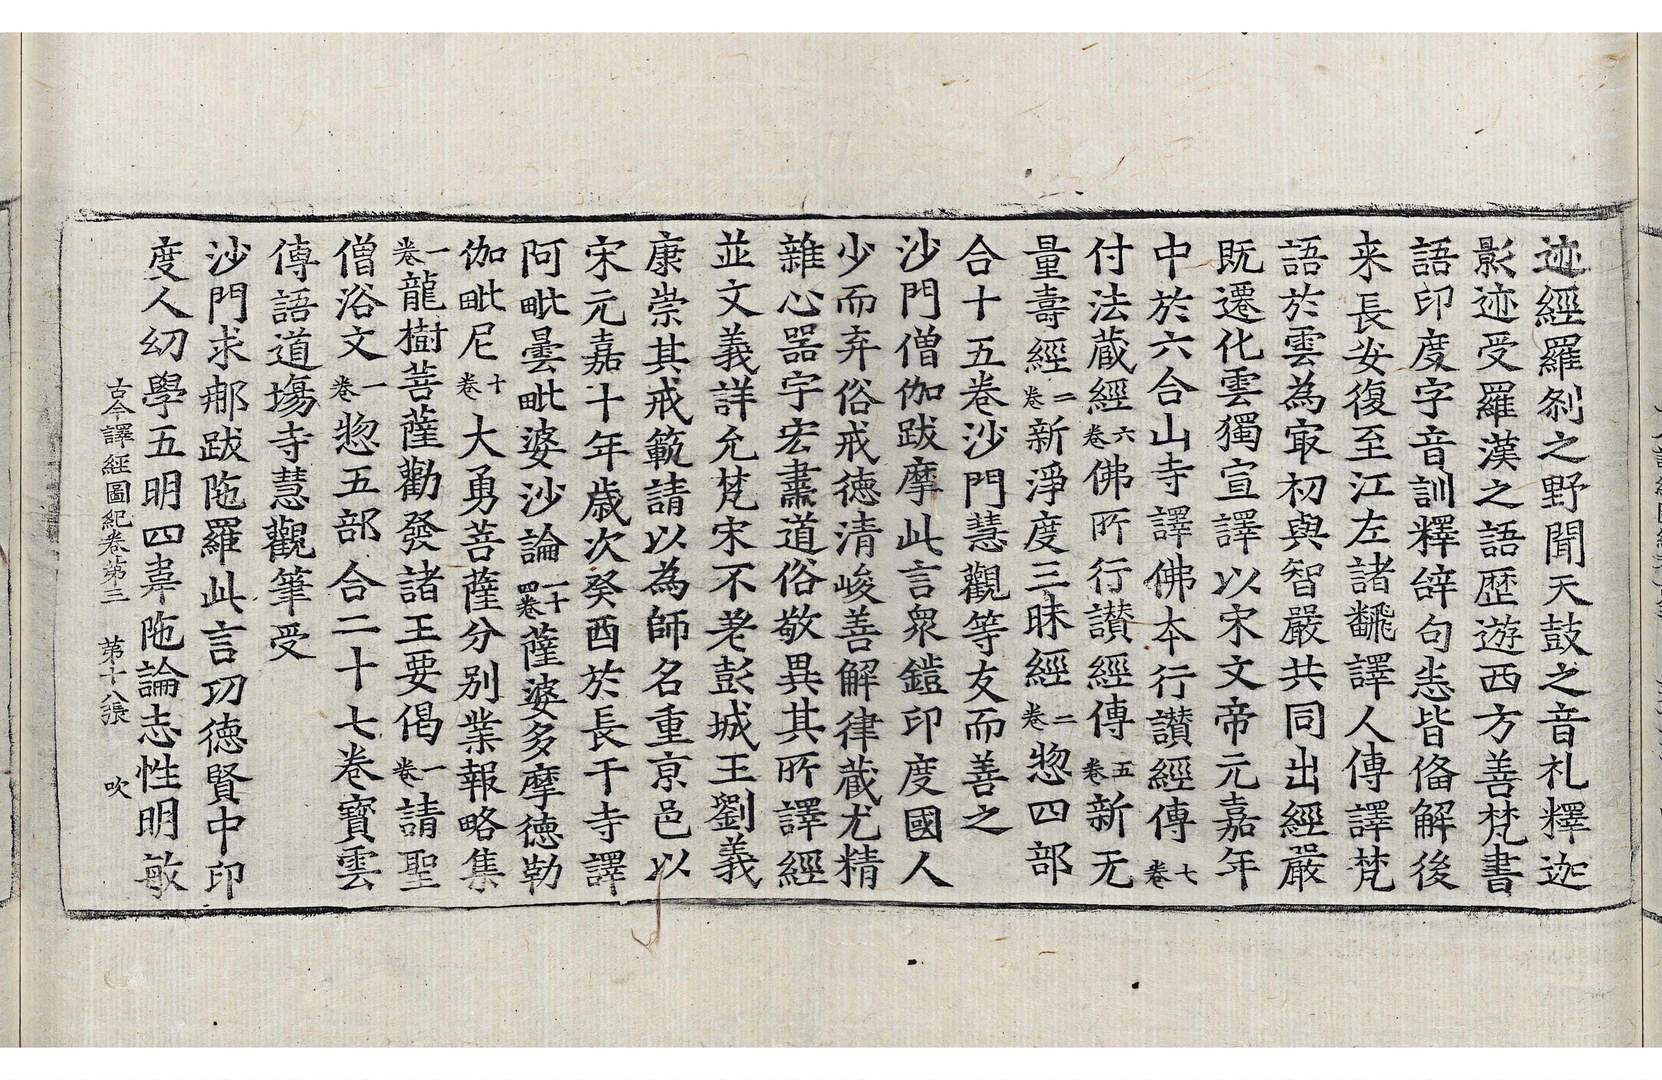 迹經羅刹之野聞天鼓之音礼釋迦
影迹受羅漢之語歷遊西方善梵書
語印度字音訓釋辝句悉皆俻解後
来長安復至江左諸飜譯人傳譯梵
語於雲為㝡初與智嚴共同出經嚴
既遷化雲獨宣譯以宋文帝元嘉年
中於六合山寺譯佛夲行讃經傳七卷
付法蔵經六卷佛所行讃經傳五卷新无
量壽經二卷新淨度三昧經二卷惣四部
合十五卷沙門慧觀等友而善之
沙門僧伽跋摩此言衆鎧印度國人
少而弃俗戒徳清峻善解律蔵尤精
雜心器宇宏肅道俗敬異其所譯經
並文義詳允梵宋不差彭城王劉義
康崇其戒範請以為師名重亰邑以
宋元嘉十年歳次癸酉於長干寺譯
阿毗曇毗婆沙論一十四卷薩婆多摩徳勒
伽毗尼十卷大勇菩薩分别業報略集
一卷龍樹菩薩勸發諸王要偈一卷請聖
僧浴文一卷惣五部合二十七卷寶雲
傳語道塲寺慧觀筆受
沙門求那跋陁羅此言㓛徳賢中印
度人㓜學五明四韋陁論志性明敏
古今譯經圖紀卷第三 第十八張 吹